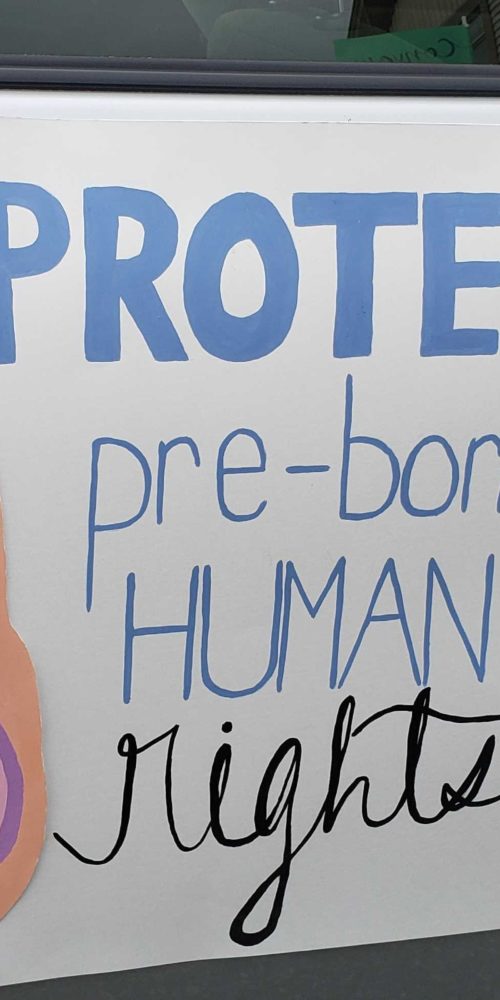 PROTE
pre-bor
HUMAN
rights